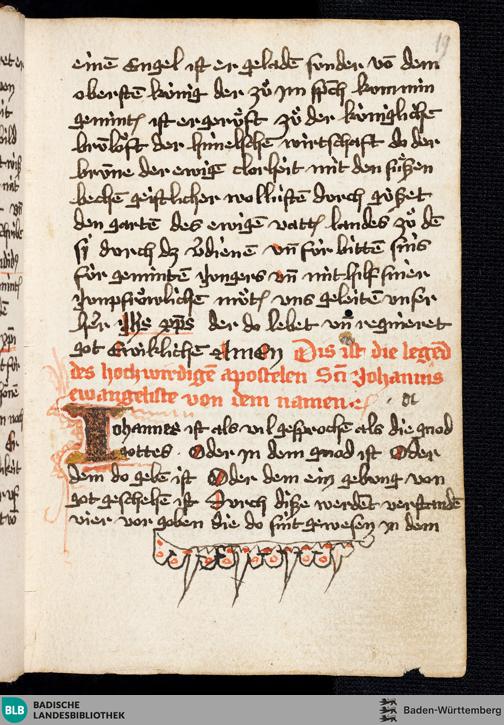 19
einē Engel ist er geladē sunder vō dem
obersten kúnig der zů im sp̄ch kum min
geminter ist er gerůfft zů der kúniglichē
brúlofft der himelschē wirtschaft do der
brúne der ewigē clorheit mit den sůssen
bechē geistlicher wollústen durch gússet
den gartē des ewigen vatter landes zů dē
si durch dz v̄dienē vn̄ fúr bitten sins
fúr geminten jungers vn̄ mit hilf siner
junpfröwlichē můter vns geleitē vnser
her Jhs xp̄s der do lebet vn̄ regnieret
got Ewiklichē amen Dis ist die legēd
des hochwirdigē apostelen Scī Johannis
ewangeliste von dem namen
Iohannes ist als vil gesprochē als die gnod
gottes Oder in dem gnod ist Oder
dem do gebē ist Oder dem ein gebung von
got geschehē ist Durch disse werdēt verstandē
vier vor goben die do sint gewesen in dem
BLB BADISCHE
LANDESBIBLIOTHEK
Baden-Württemberg